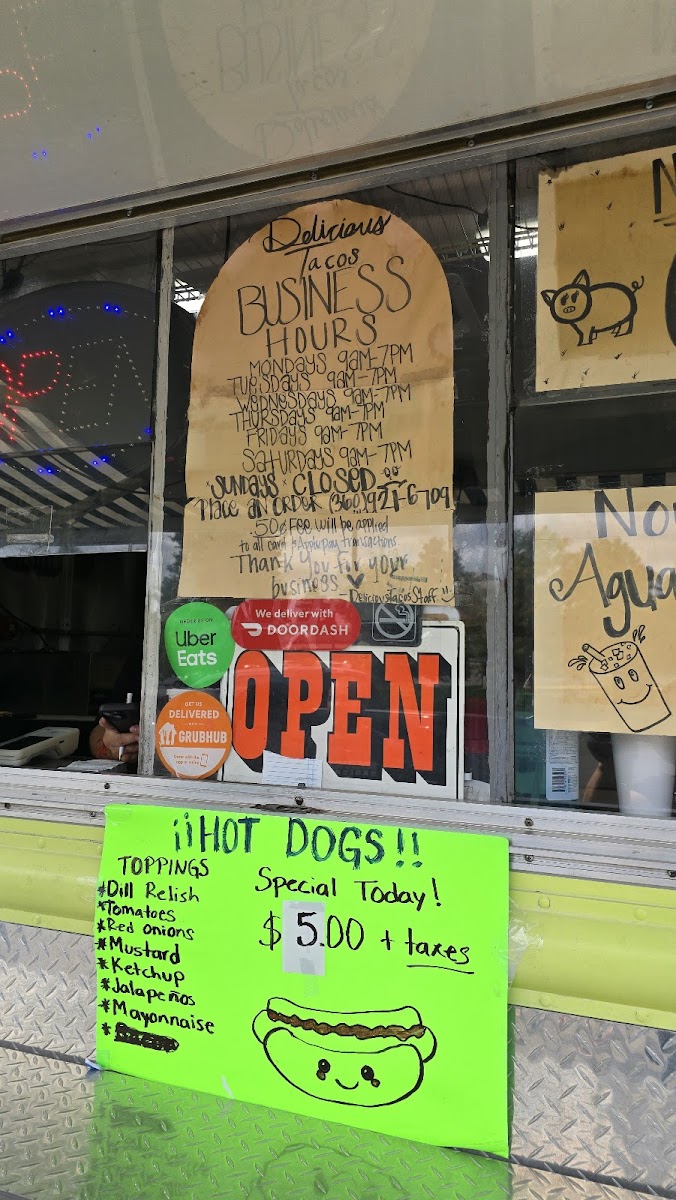 Delicious
Tacos
BUSINESS
HOURS
MONDAYS 9AM-7PM
TUESDAYS 9AM-7PM
WEDNESDAYS 9AM-7PM
THURSDAYS 9AM-7PM
FRIDAYS 9AM-7PM
SATURDAYS 9AM-7PM
*SUNDAYS* CLOSED
Place AN ORDER (360)927-6709
.50¢ Fee will be applied
to all card & Apple pay transactions
Thank you for your
business
-DeliciousTacosStaff
Uber
Eats
We deliver with
DOORDASH
GET US
DELIVERED
GRUBHUB
OPEN
Agua
¡¡HOT DOGS!!
TOPPINGS
*Dill Relish
*Tomatoes
*Red onions
*Mustard
*Ketchup
*Jalapeños
*Mayonnaise
*
Special Today!
$5.00 + taxes